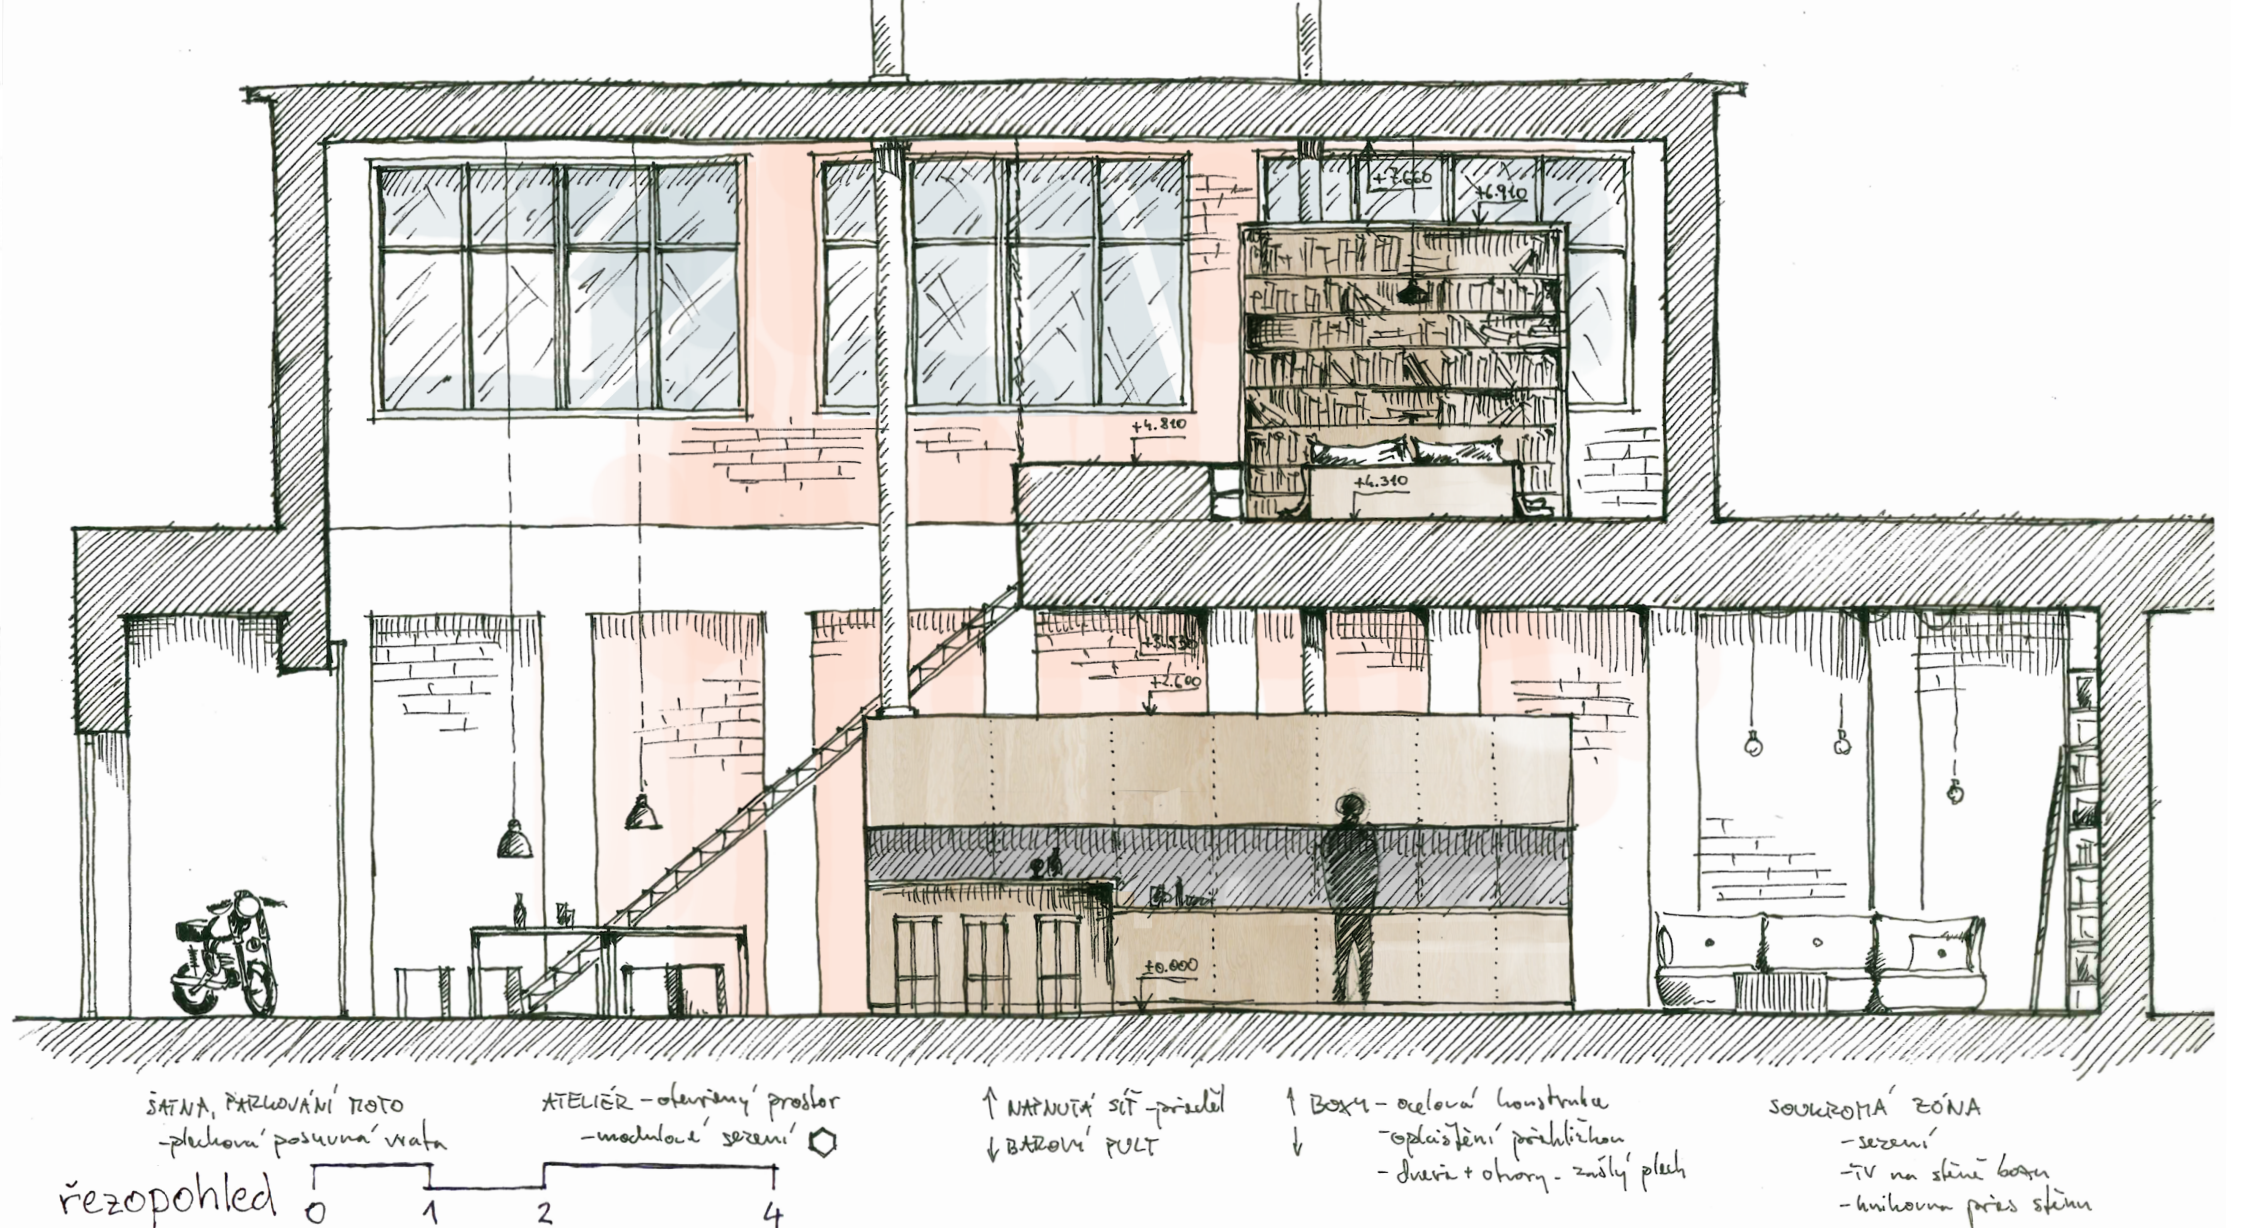 +7.660
+6.910
+4.810
+4.310
+3.530
+2.600
±0.000
ŠATNA, PARKOVÁNÍ MOTO
-plechová posuvná vrata
ATELIÉR - otevřený prostor
-modulové sezení
↑ NAPNUTÁ SÍŤ - předěl
↓ BAROVÝ PULT
↑ BOXY - ocelová konstrukce
↓ -opláštění překližkou
- dveře + otvory - zašlý plech
SOUKROMÁ ZÓNA
-sezení
-TV na stěně boxu
-knihovna přes stěnu
řezopohled
0 1 2 4